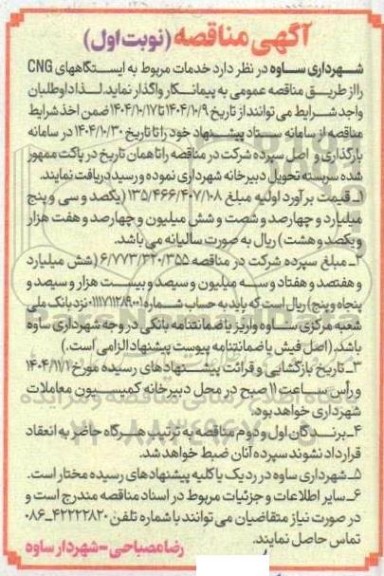 آگهی مناقصه (نوبت اول)
شهرداری ساوه در نظر دارد خدمات مربوط به ایستگاههای CNG
را از طریق مناقصه عمومی به پیمانکار واگذار نماید. لذا داوطلبان
واجد شرایط می توانند از تاریخ ۱۴۰۴/۱۰/۹ تا ۱۴۰۴/۱۰/۱۷ ضمن اخذ شرایط
مناقصه از سامانه ستاد پیشنهاد خود را تا تاریخ ۱۴۰۴/۱۰/۳۰ در سامانه
بارگذاری و اصل سپرده شرکت در مناقصه را تا همان تاریخ در پاکت ممهور
شده سربسته تحویل دبیرخانه شهرداری نموده و رسید دریافت نمایند.
۱ـ قیمت برآورد اولیه مبلغ ۱۳۵/۴۶۶/۴۰۷/۱۰۸ (یکصد و سی و پنج
میلیارد و چهارصد و شصت و شش میلیون و چهارصد و هفت هزار
و یکصد و هشت) ریال به صورت سالیانه می باشد.
۲ـ مبلغ سپرده شرکت در مناقصه ۶/۷۷۳/۳۲۰/۳۵۵ (شش میلیارد
و هفتصد و هفتاد و سه میلیون و سیصد و بیست هزار و سیصد و
پنجاه و پنج) ریال است که باید به حساب شماره نزد بانک ملی
شعبه مرکزی ساوه واریز یا ضمانتنامه بانکی در وجه شهرداری ساوه
باشد. (اصل فیش یا ضمانتنامه پیوست پیشنهاد الزامی است.)
۳ـ تاریخ بازگشایی و قرائت پیشنهادهای رسیده مورخ ۱۴۰۴/۱۱/۱
و رأس ساعت ۱۱ صبح در محل دبیرخانه کمیسیون معاملات
شهرداری خواهد بود.
۴ـ برندگان اول و دوم مناقصه به ترتیب هرگاه حاضر به انعقاد
قرارداد نشوند سپرده آنان ضبط خواهد شد.
۵ـ شهرداری ساوه در رد یک یا کلیه پیشنهادهای رسیده مختار است.
۶ـ سایر اطلاعات و جزئیات مربوط در اسناد مناقصه مندرج است و
در صورت نیاز متقاضیان می توانند با شماره تلفن ۴۲۲۲۲۸۲۰-۰۸۶
تماس حاصل نمایند.
رضا مصباحی - شهردار ساوه